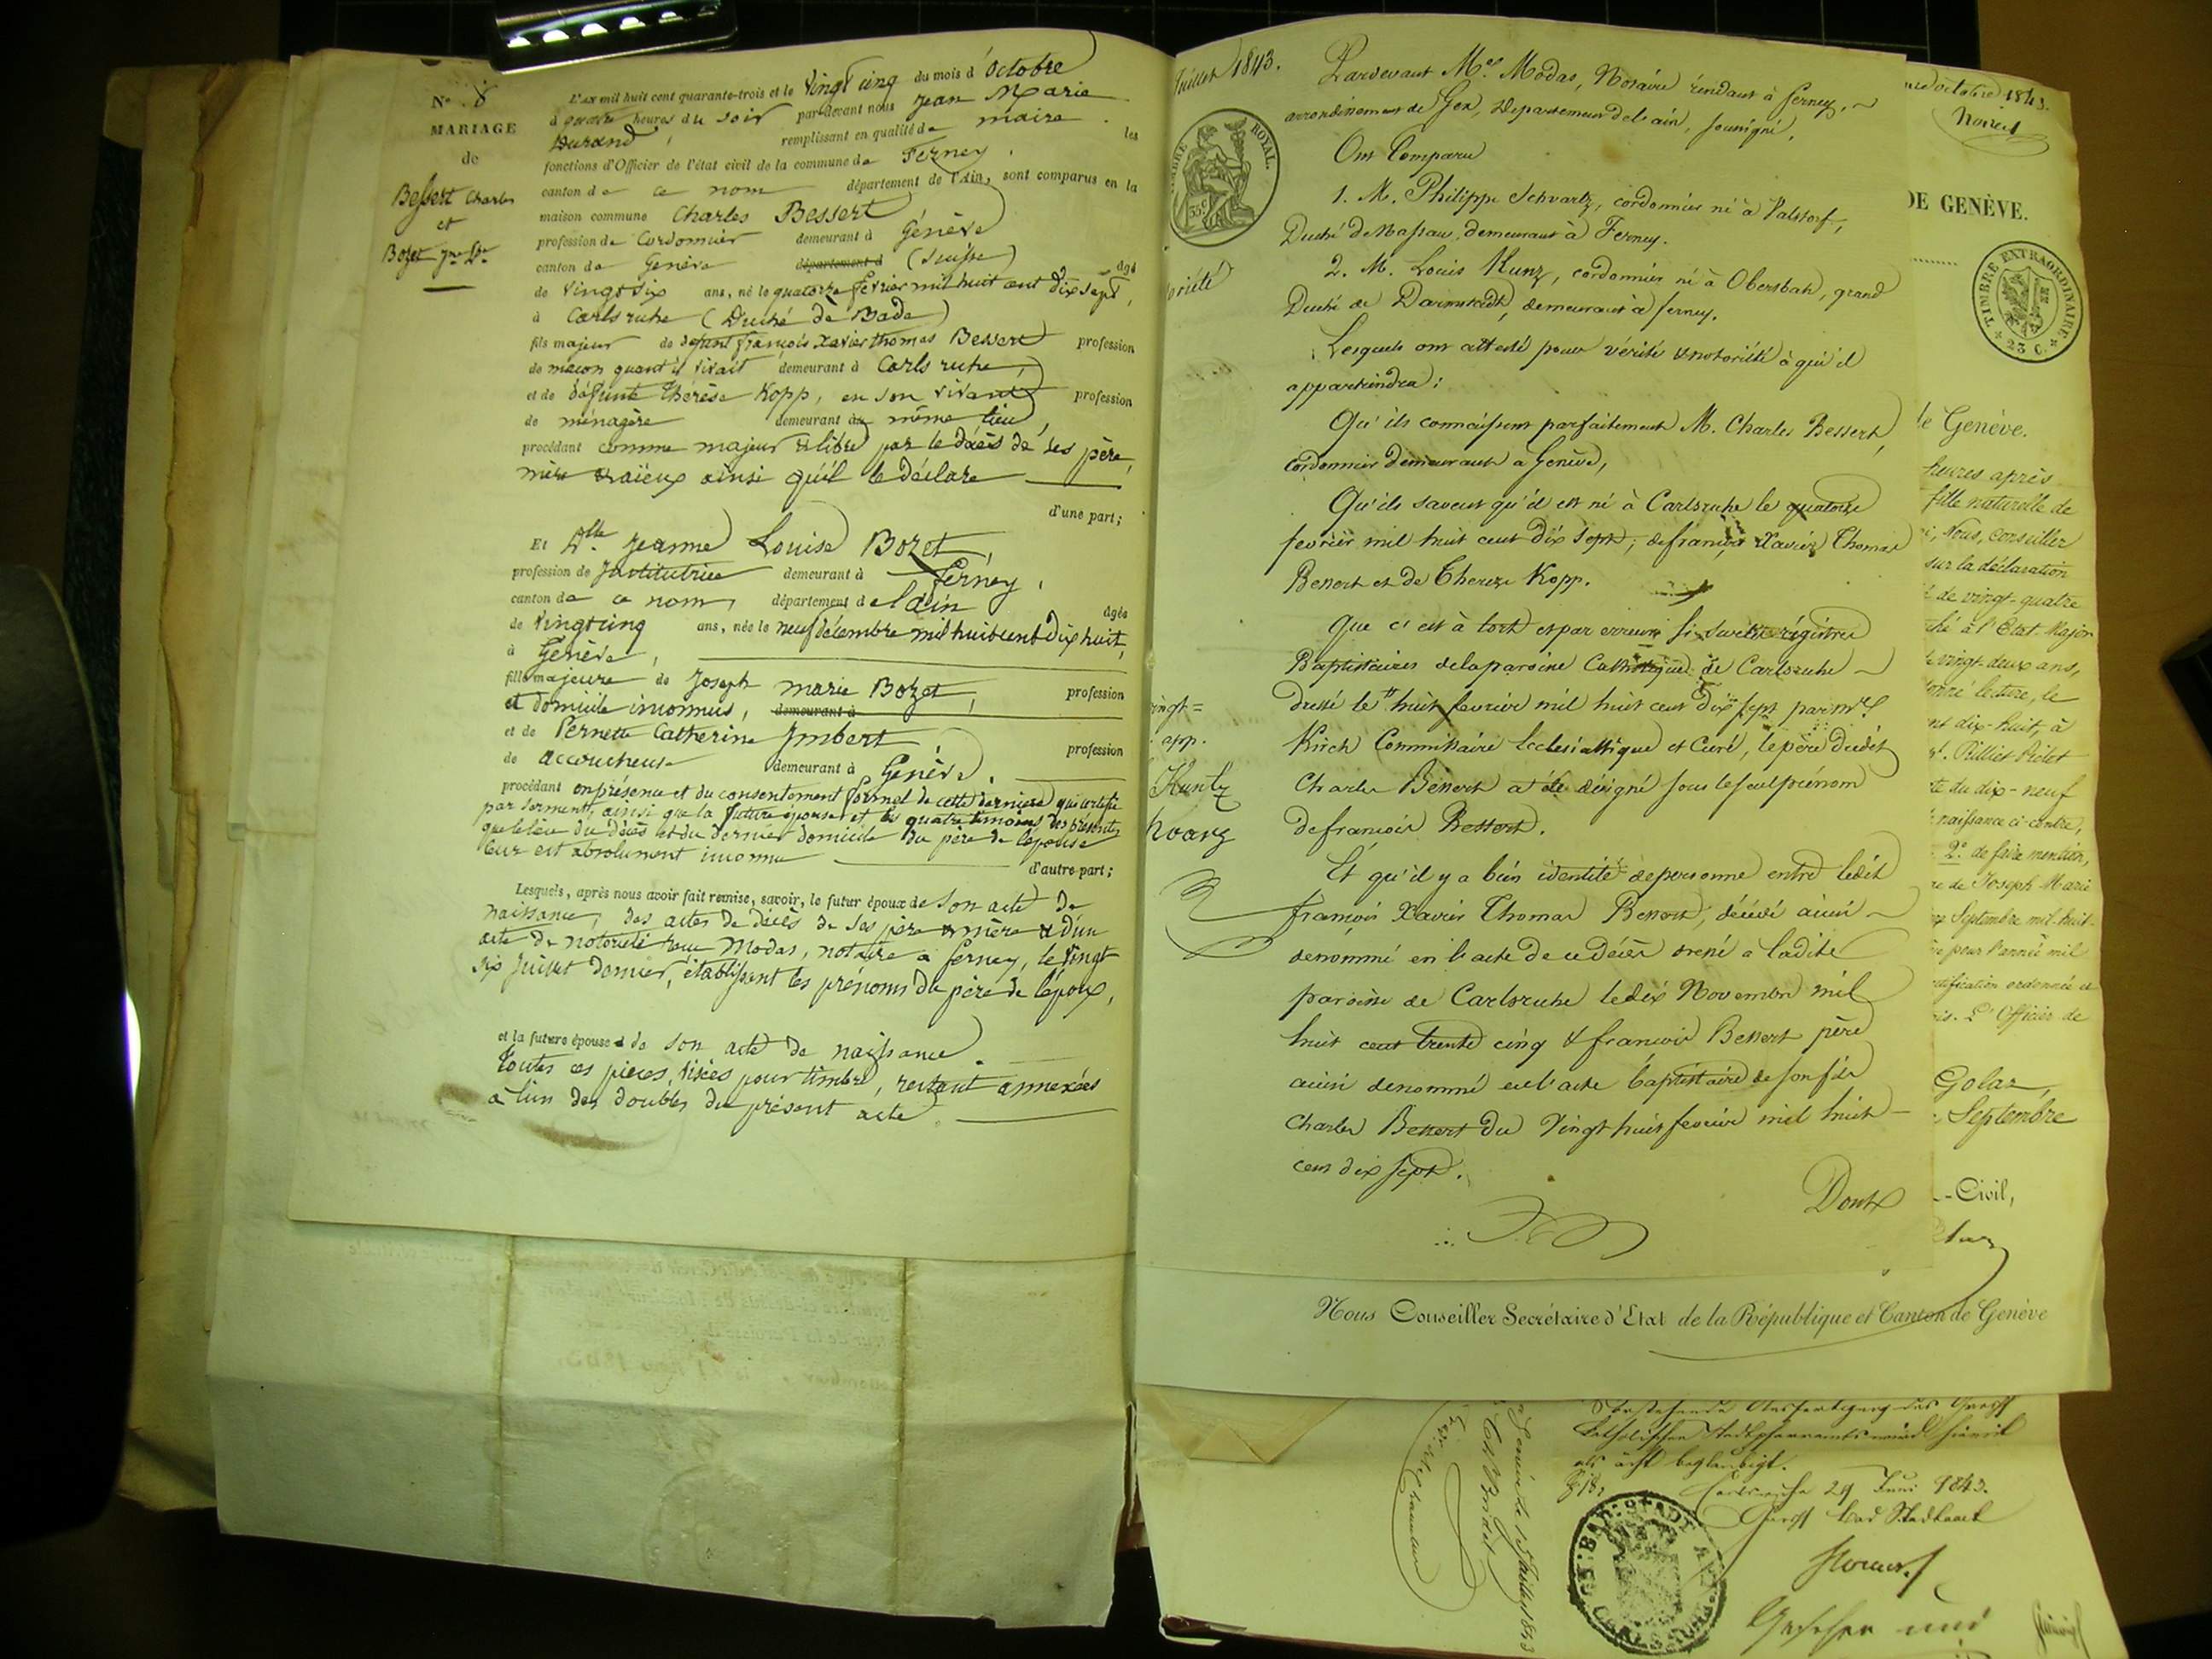 N.º 8
MARIAGE
de
Bessert Charles
et
Bozet Jne Lse
L'AN mil huit cent quarante-trois et le Vingt cinq du mois d'Octobre
à quatre heures du soir par-devant nous Jean Marie
Durand, remplissant en qualité de maire les
fonctions d'Officier de l'état civil de la commune de Ferney,
canton de ce nom département de l'Ain, sont comparus en la
maison commune Charles Bessert
profession de Cordonnier demeurant à Genève
canton de Genève département d (Suisse) âgé
de Vingt six ans, né le quatorze février mil huit cent dix sept,
à Carlsruhe (Duché de Bade)
fils majeur de défunt françois Xavier thomas Bessert profession
de maçon quant il vivait demeurant à Carlsruhe,
et de défunte Thérèse Kopp, en son vivant profession
de ménagère demeurant au même lieu,
procédant comme majeur et libre par le décès de ses père,
mère et aïeux ainsi qu'il le déclare
d'une part;
Et Dlle Jeanne Louise Bozet,
profession de Institutrice demeurant à Ferney,
canton de ce nom, département de l'ain âgée
de Vingt cinq ans, née le neuf décembre mil huit cent dix huit,
à Genève,
fille majeure de Joseph marie Bozet, profession
et domicile inconnus, demeurant à
et de Pernette Catherine Imbert profession
de accoucheuse demeurant à Genève.
procédant en présence et du consentement formel de cette dernière qui certifie
par serment, ainsi que la future épouse et les quatre témoins des présentes
que le lieu du décès et du dernier domicile du père de l'épouse
leur est absolument inconnu
d'autre part;
Lesquels, après nous avoir fait remise, savoir, le futur époux de son acte de
naissance, des actes de décès de ses père et mère et d'un
acte de notoriété reçu Modas, notaire à ferney, le vingt
six Juillet dernier, établissant les prénoms du père de l'époux,
et la future épouse de son acte de naissance.
Toutes ces pièces, visées pour timbre, restant annexées
à l'un des doubles du présent acte.
Juillet 1843.
TIMBRE ROYAL.
35 c
oriété
Pardevant Me Modas, Notaire rendant à ferney,
arrondissement de Gex, Département de l'ain, soussigné,
Ont Comparu
1. M. Philippe Schvartz, cordonnier né à Valstorf,
Duché de Nassau, demeurant à Ferney.
2. M. Louis Kunz, cordonnier né à Obersbah, grand
Duché de Darmstadt, demeurant à ferney.
Lesquels ont attesté pour vérité et notoriété à qui il
appartiendra:
Qu'ils connaissent parfaitement M. Charles Bessert,
cordonnier demeurant à Genève,
Qu'ils savent qu'il est né à Carlsruhe le quatorze
fevrier mil huit cent dix sept, de françois Xavier Thomas
Bessert et de Thereze Kopp.
Que c'est à tort et par erreur si sur les régistres
Baptistaires de la paroisse Catholique de Carlsruhe
dressé le huit fevrier mil huit cent dix sept par mr
Kirch Commissaire Ecclesiastique et Curé, le père dudit
Charles Bessert a été désigné sous le seul prénom
de francois Bessert.
Et qu'il y a bien identité de personne entre ledit
françois Xavier Thomas Bessert, décédé ainsi
denommé en l'acte de ce décès dressé a ladite
paroisse de Carlsruhe le dix Novembre mil
huit cent trente cinq & francois Bessert père
ainsi denommé en l'acte baptistaire de son fils
Charles Bessert du Vingt huit fevrier mil huit
cent dix sept.
Dont
vingt=
app.
Kuntz
hvarz
octobre 1843.
DE GENÈVE.
TIMBRE EXTRAORDINAIRE
23 C.
de Genève.
heures après
fille naturelle de
Nous, conseiller
sur la déclaration
de vingt-quatre
ché à l'Etat-Major
vingt-deux ans,
donné lecture, le
nt dix-huit, à
Rilliet Pictet
te du dix-neuf
naissance ci-contre,
2.º de faire mention,
re de Joseph Marie
Septembre mil-huit-
pour l'année mil
rectification ordonnée et
L'Officier de
Golaz,
Septembre
-Civil,
Nous Conseiller Secrétaire d'Etat de la République et Canton de Genève
als ächt beglaubigt.
Carlsruhe 29 Juni 1843.
Gesehen und